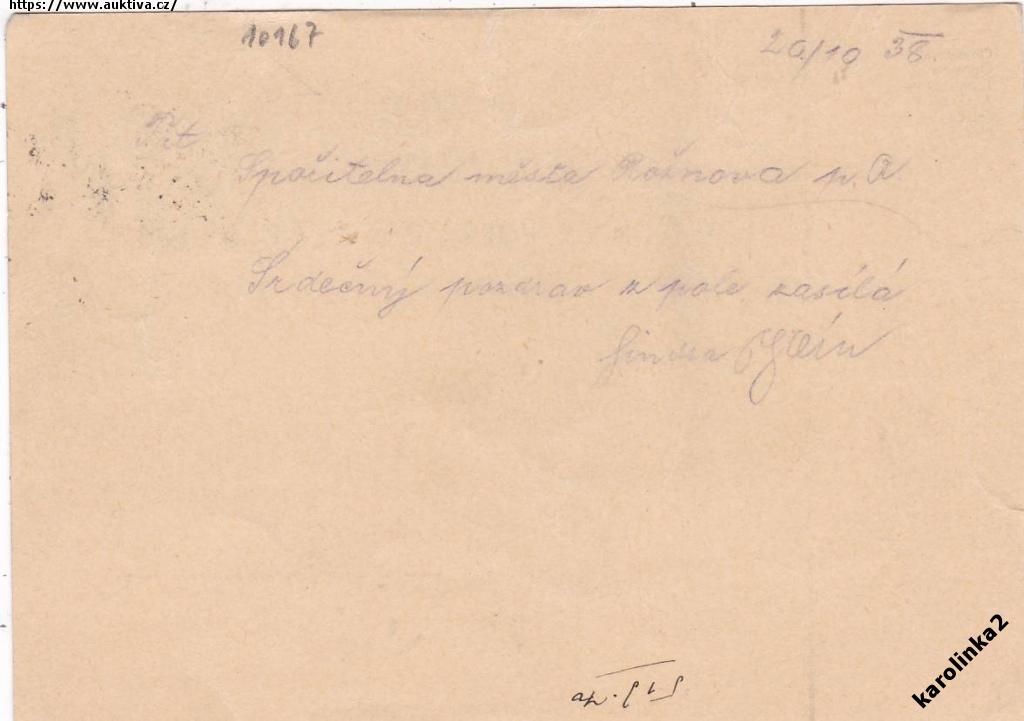 https://www.auktiva.cz/
10167
20/10 38.
Spořitelna města Rožnova p. R.
Srdečný pozdrav z pole zasílá
Jindra
karolinka2